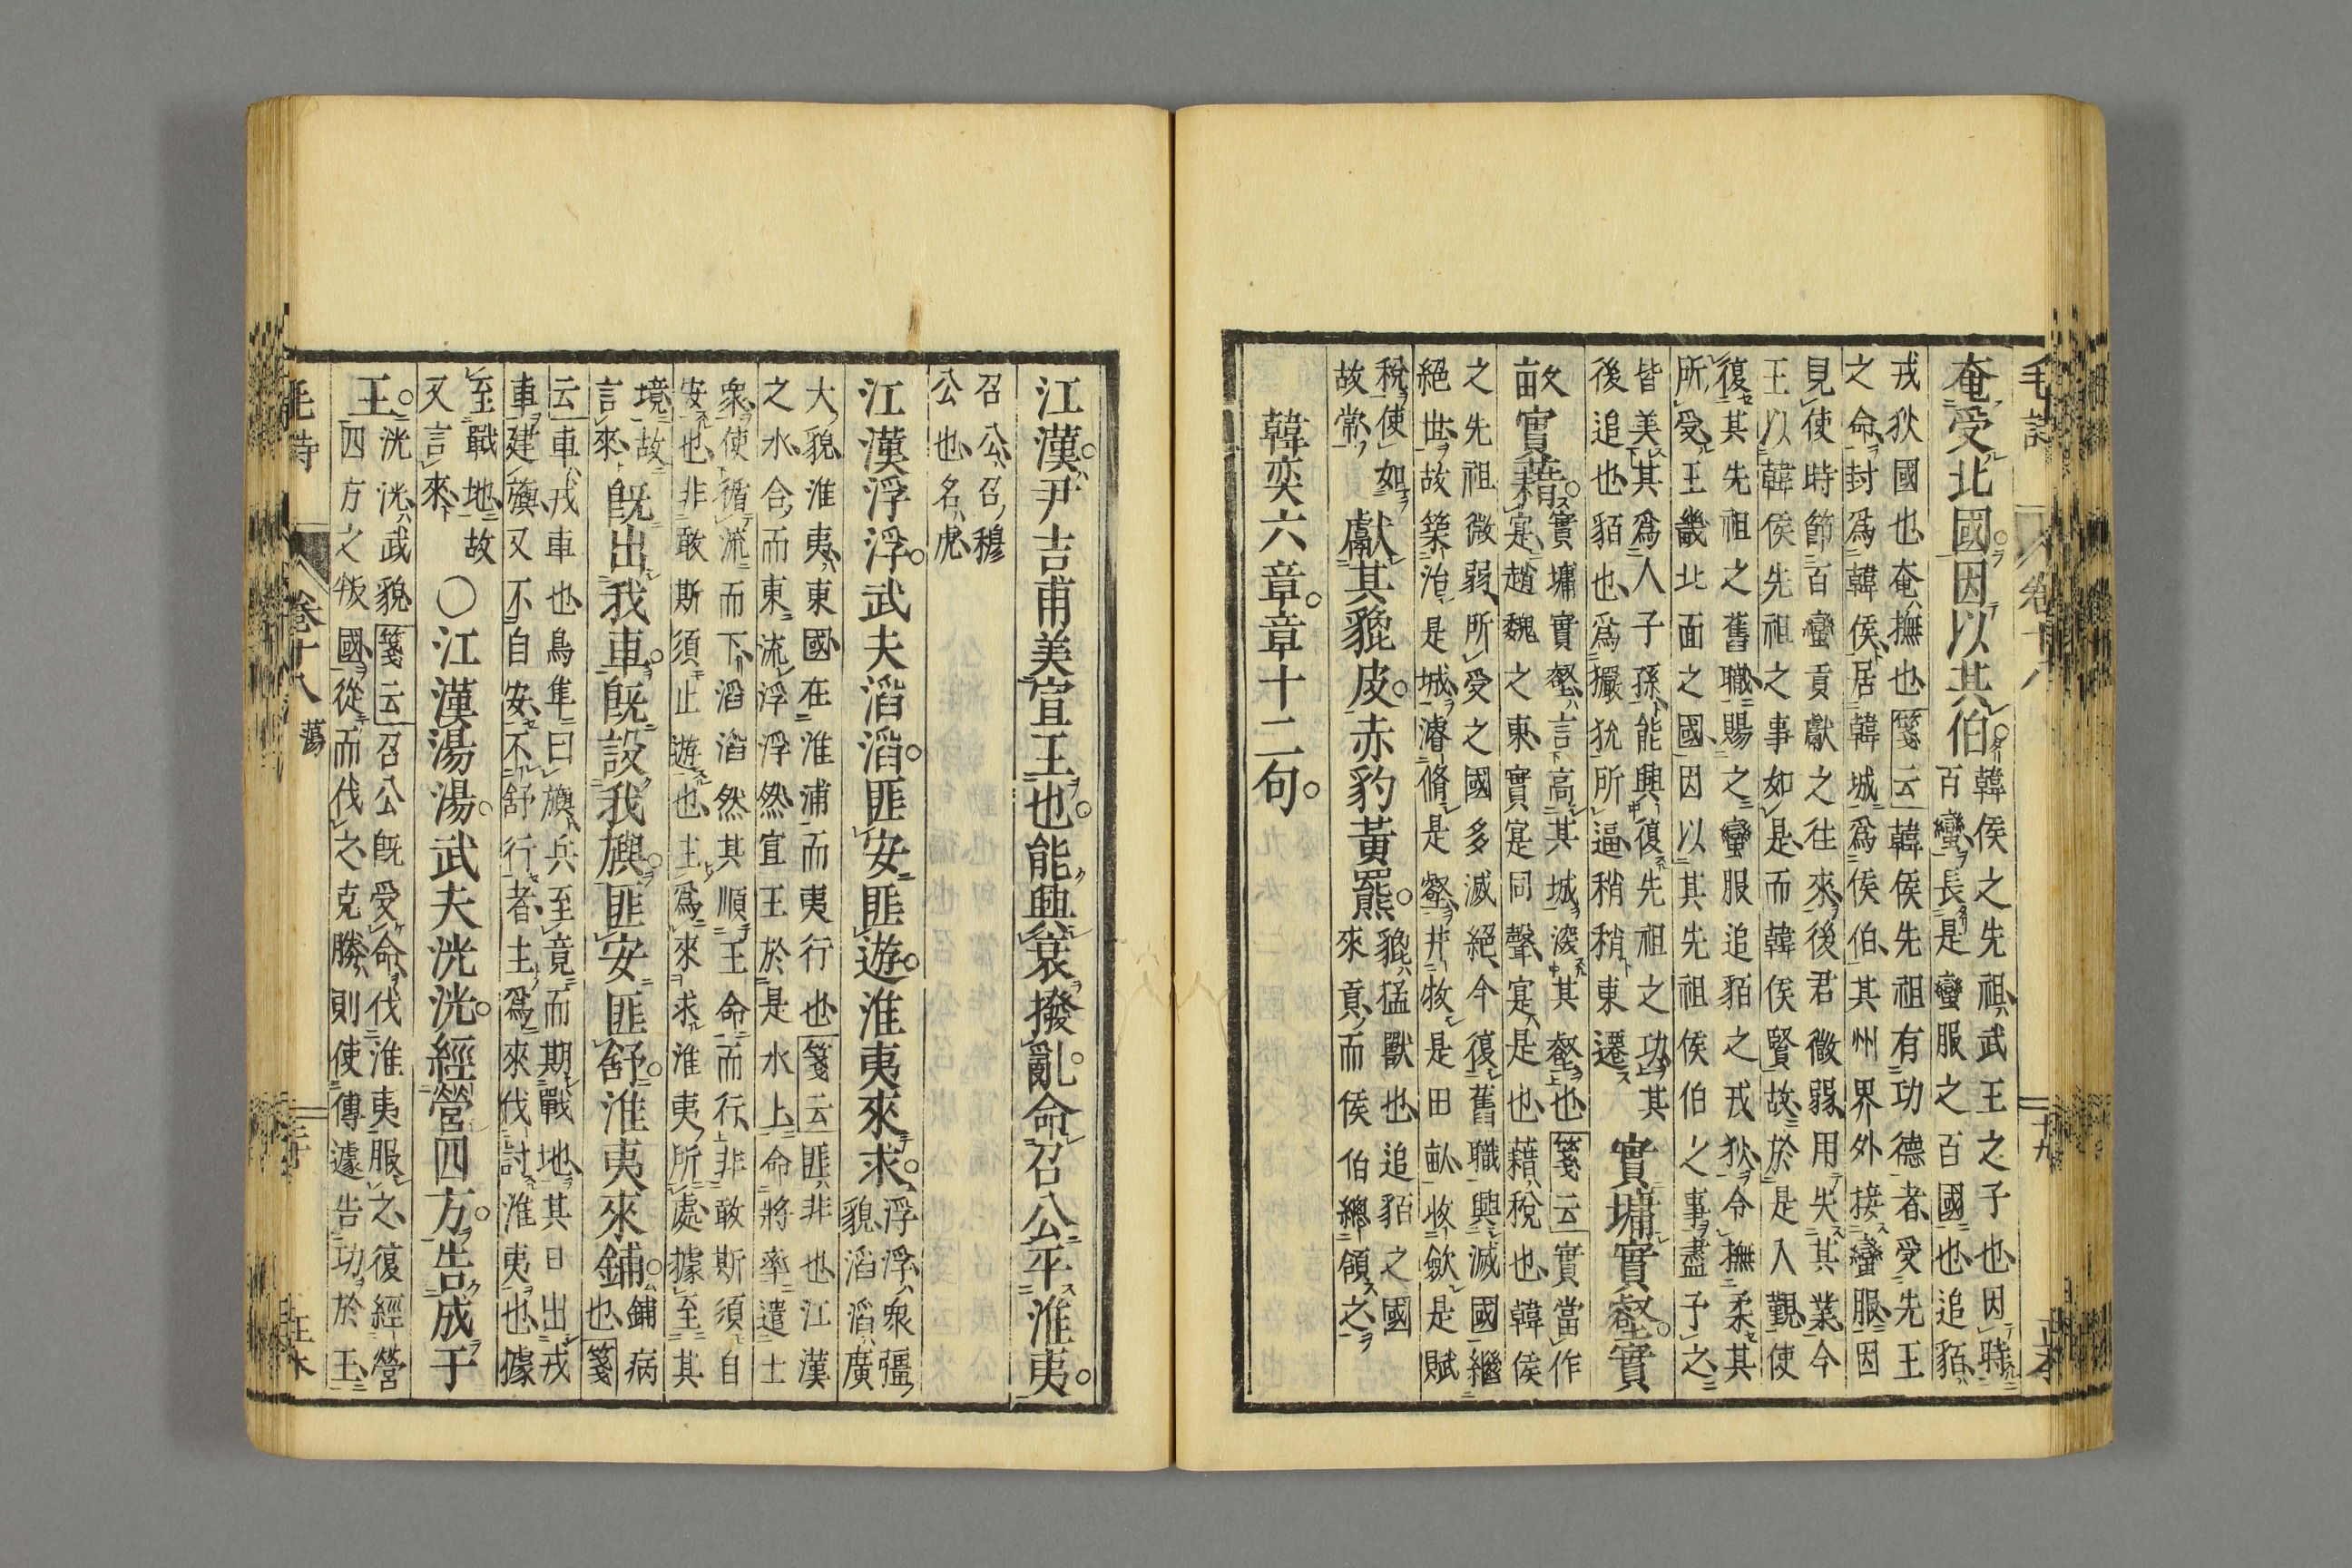 毛詩　卷十八　二十九
奄受北國。因以其伯。
韓侯之先祖武王之子也因時
百蠻長是蠻服之百國也追貊
戎狄國也奄撫也箋云韓侯先祖有功德者受先王
之命封爲韓侯居韓城爲侯伯其州界外接蠻服因
見使時節百蠻貢獻之往來後君微弱用失其業今
王以韓侯先祖之事如是而韓侯賢故於是入覲使
復其先祖之舊職賜之蠻服追貊之戎狄令撫柔其
所受王畿北面之國因以其先祖侯伯之事盡予之
皆美其爲人子孫能興復先祖之功其
後追也貊也爲玁狁所逼稍稍東遷
實墉實壑。實
畝實藉。
實墉實壑言高其城深其壑也箋云實當作
寔趙魏之東實寔同聲寔是也藉稅也韓侯
之先祖微弱所受之國多滅絕今復舊職興滅國繼
絕世故築治是城濬脩是壑井牧是田畝收斂是賦
稅使如
故常
獻其貔皮。赤豹黃羆。
貔猛獸也追貊之國
來貢而侯伯總領之
韓奕六章。章十二句。
江漢。尹吉甫美宣王也。能興衰撥亂。命召公平淮夷。
召公召穆
公也名虎
江漢浮浮。武夫滔滔。匪安匪遊。淮夷來求。
浮浮眾彊
貌滔滔廣
大貌淮夷東國在淮浦而夷行也箋云匪非也江漢
之水合而東流浮浮然宣王於是水上命將率遣士
衆使循流而下滔滔然其順王命而行非敢斯須自
安也非敢斯須止遊也主爲來求淮夷所處據至其
境故
言來
旣出我車。旣設我旟。匪安匪舒。淮夷來鋪。
鋪病
也箋
云車戎車也鳥隼曰旟兵至竟而期戰地其日出戎
車建旟又不自安不舒行者主爲來伐討淮夷也據
至戰地故
又言來
○江漢湯湯。武夫洸洸。經營四方。告成于
王。
洸洸武貌箋云召公旣受命伐淮夷服之復經營
四方之叛國從而伐之克勝則使傳遽告功於王
毛詩　卷十八　蕩　三十